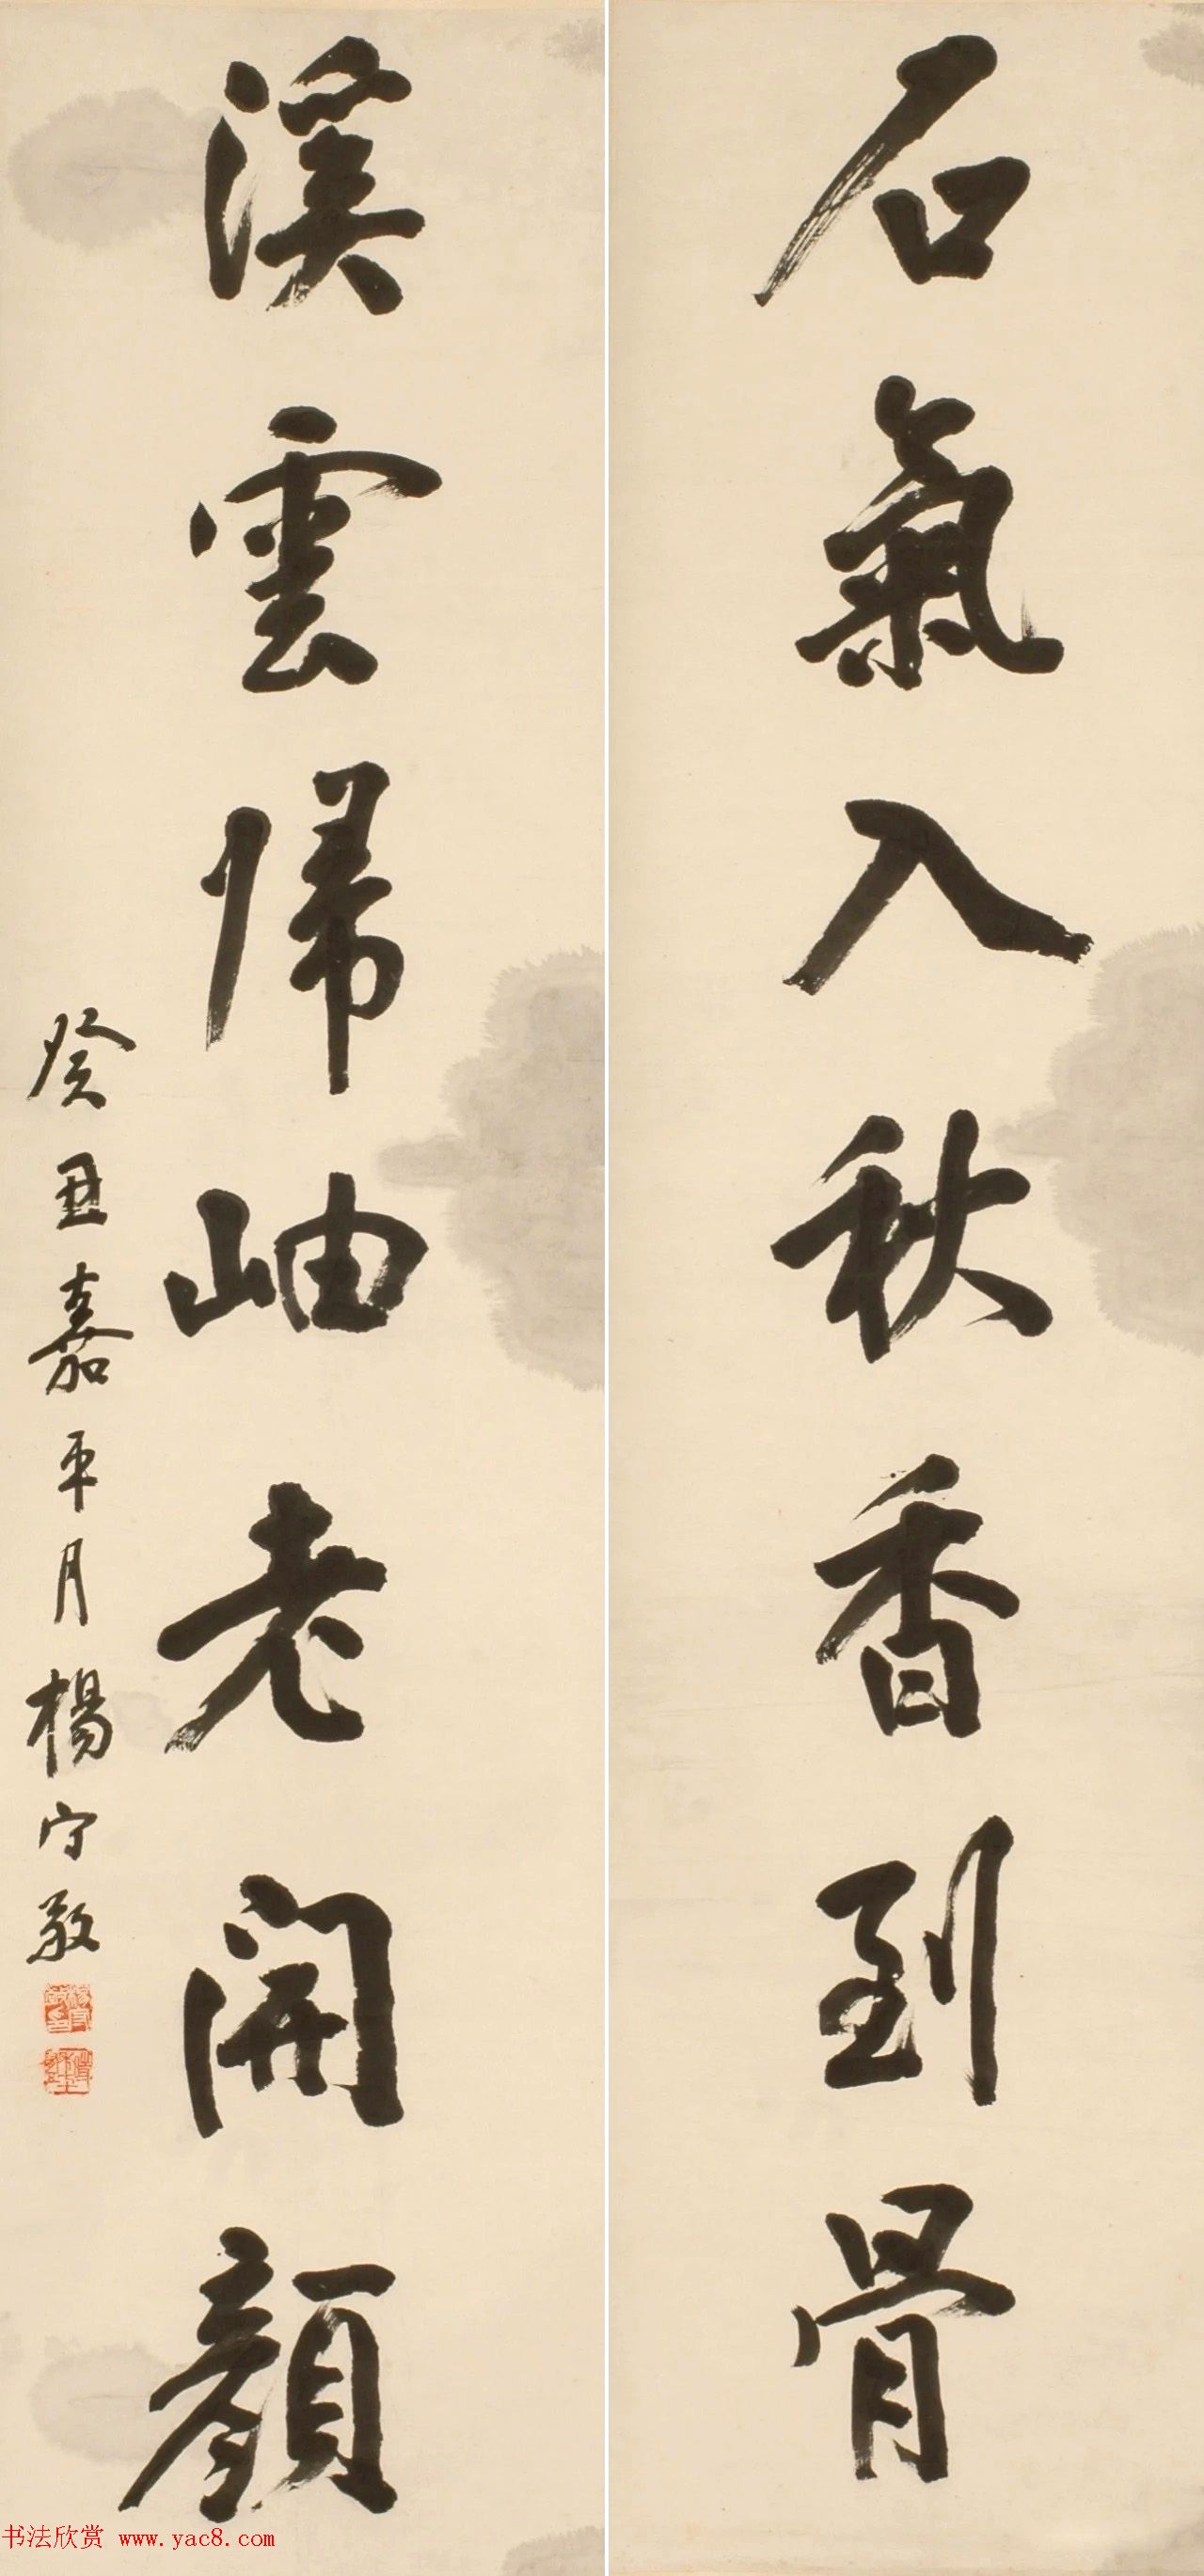 石氣入秋香到骨
溪雲帰岫老開顏
癸丑嘉平月楊守敬
书法欣赏 www.yac8.com